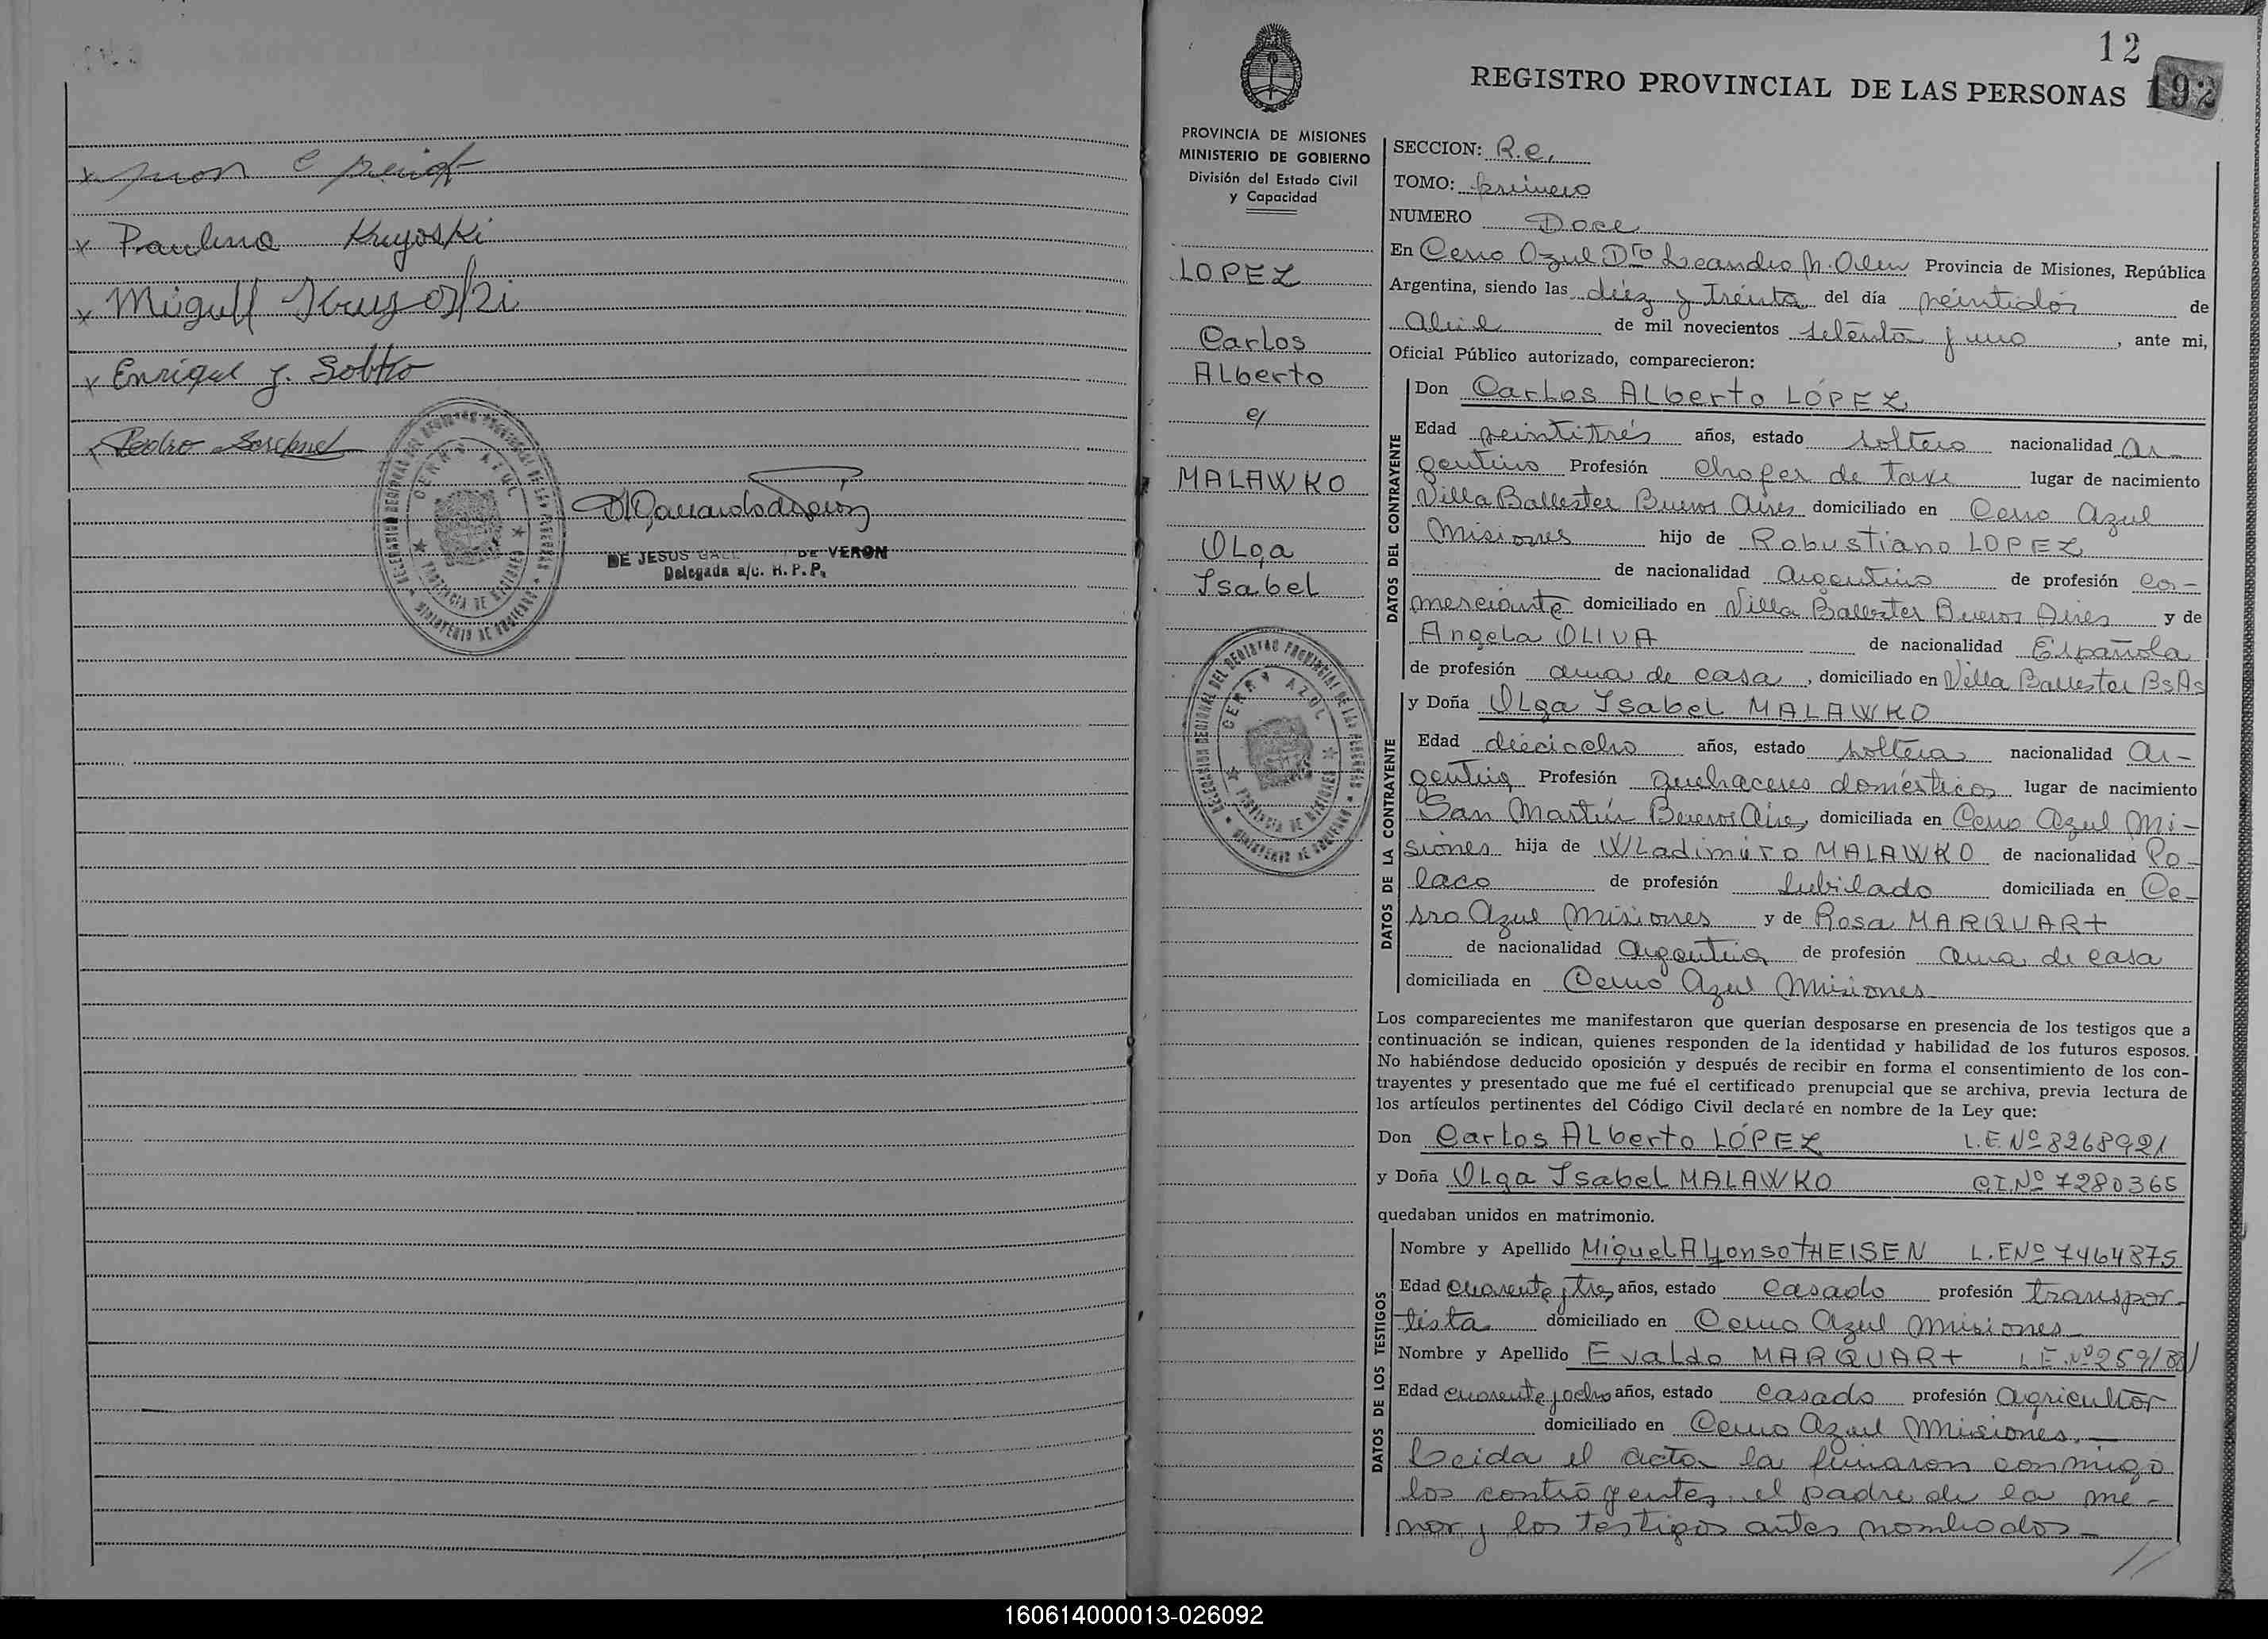 Paulina Kuyoski
Enrique J. Sobtko
Pedro
DE JESUS DE VERON
Delegada a/c. R. P. P.
12
REGISTRO PROVINCIAL DE LAS PERSONAS 192
PROVINCIA DE MISIONES
MINISTERIO DE GOBIERNO
División del Estado Civil
y Capacidad
LOPEZ
Carlos
ALberto
y
MALAWKO
OLga
Isabel
SECCION: R.e.
TOMO: primero
NUMERO Doce
En Cerro Azul Dto Leandro N. Alem Provincia de Misiones, República
Argentina, siendo las diez y treinta del día veintidós de
Abril de mil novecientos setenta y uno, ante mi,
Oficial Público autorizado, comparecieron:
DATOS DEL CONTRAYENTE
Don Carlos ALberto LÓPEZ
Edad veintitrés años, estado soltero nacionalidad Ar-
gentino Profesión chofer de taxi lugar de nacimiento
Villa Ballester Buenos Aires domiciliado en Cerro Azul
Misiones hijo de Robustiano LOPEZ
de nacionalidad Argentino de profesión co-
merciante domiciliado en Villa Ballester Buenos Aires y de
Angela OLIVA de nacionalidad Española
de profesión ama de casa, domiciliado en Villa Ballester Bs As
DATOS DE LA CONTRAYENTE
y Doña OLga Isabel MALAWKO
Edad dieciocho años, estado soltera nacionalidad Ar-
gentina Profesión quehaceres domésticos lugar de nacimiento
San Martín Buenos Aires domiciliada en Cerro Azul Mi-
siones hija de WLadimiro MALAWKO de nacionalidad Po-
laco de profesión Jubilado domiciliada en Ce-
rro Azul Misiones y de Rosa MARQUARt
de nacionalidad Argentina de profesión ama de casa
domiciliada en Cerro Azul Misiones
Los comparecientes me manifestaron que querían desposarse en presencia de los testigos que a
continuación se indican, quienes responden de la identidad y habilidad de los futuros esposos.
No habiéndose deducido oposición y después de recibir en forma el consentimiento de los con-
trayentes y presentado que me fué el certificado prenupcial que se archiva, previa lectura de
los artículos pertinentes del Código Civil declaré en nombre de la Ley que:
Don Carlos ALberto LÓPEZ L.E.Nº 8268921
y Doña OLga Isabel MALAWKO CI.Nº 7280365
quedaban unidos en matrimonio.
DATOS DE LOS TESTIGOS
Nombre y Apellido MigueL ALfonso tHEISEN L.E.Nº 7464875
Edad cuarenta y tres años, estado casado profesión transpor-
tista domiciliado en Cerro Azul Misiones
Nombre y Apellido EvaLdo MARQUARt L.E.Nº
Edad cuarenta y ocho años, estado casado profesión agricultor
domiciliado en Cerro Azul Misiones.-
Leida el acta la firmaron conmigo
los contrayentes, el padre de la me-
nor y los testigos antes nombrados-
160614000013-026092